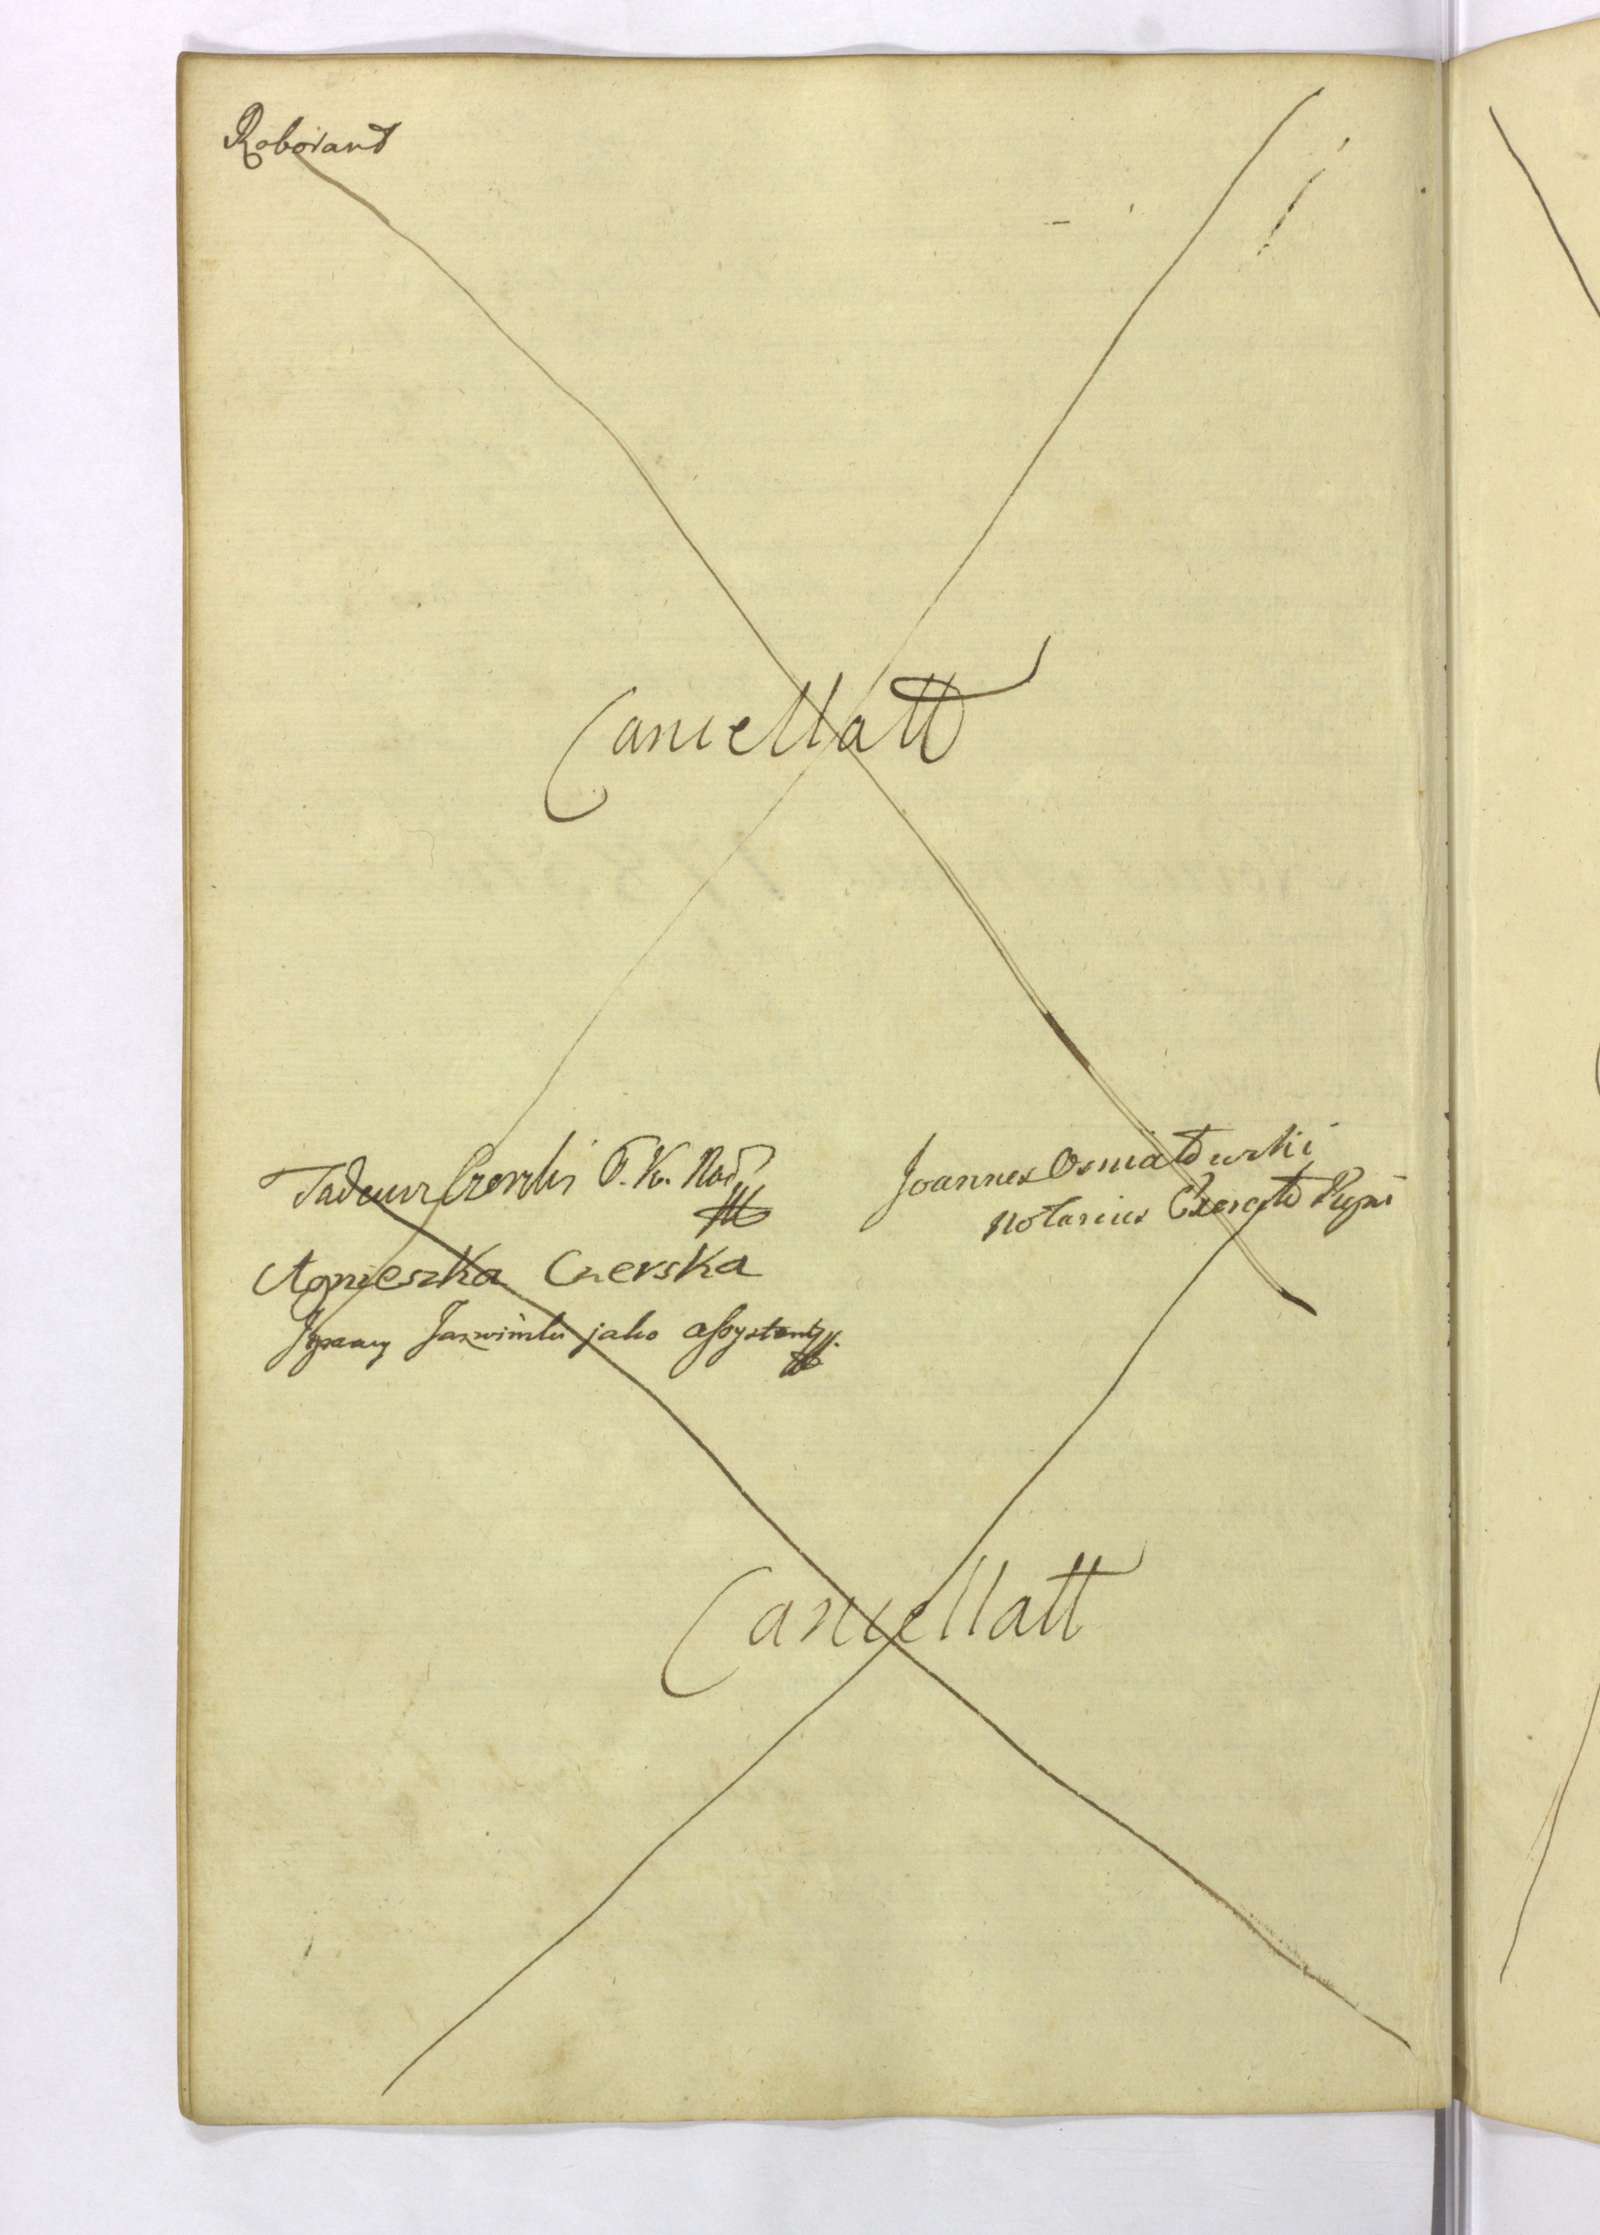 Roborant
Cancellatt
Tadeusz Czerski P. K. Nad
Agnieszka Czerska
Ignacy Jazwinski jako assystent
Joannes Osmiałowski
Notarius
Cancellatt